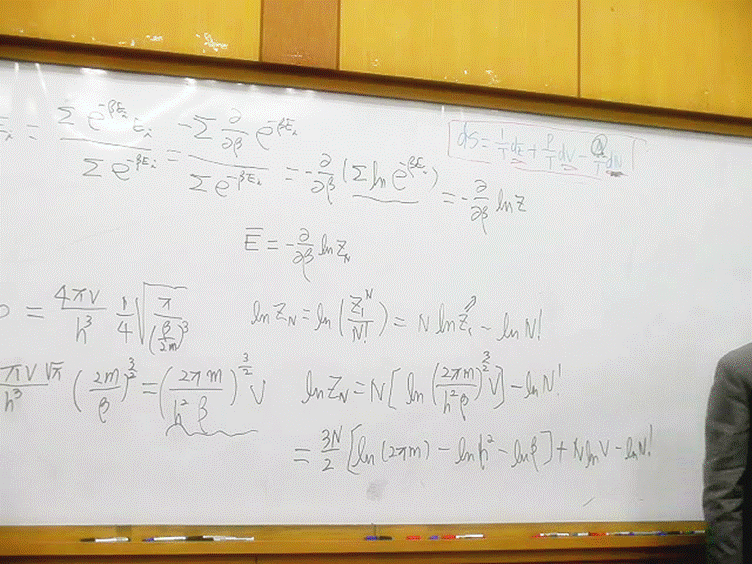 = Σ e^{-βE_i} E_i / Σ e^{-βE_i} = -Σ ∂/∂β e^{-βE_i} / Σ e^{-βE_i} = -∂/∂β (Σ ln e^{-βE_i}) = -∂/∂β ln Z
dS = 1/T dE + P/T dV - /T dN
E̅ = -∂/∂β ln Z_N
= 4πV/h³ 1/4 √(π/(β/2m)³)
ln Z_N = ln (Z_1^N / N!) = N ln Z_1 - ln N!
πV √π / h³ (2m/β)^{3/2} = (2πm / h²β)^{3/2} V
ln Z_N = N [ ln (2πm / h²β)^{3/2} V ] - ln N!
= 3N/2 [ ln (2πm) - ln h² - ln β ] + N ln V - ln N!